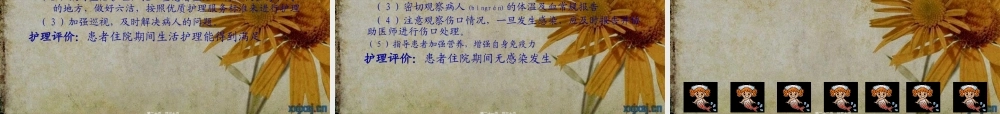 的地方，做好六洁，按照优质护理服务标准来进行护理
（3）加强巡视，及时解决病人的问题
护理评价：患者住院期间生活护理能得到满足
（3）密切观察病人（bìngrén）的体温及血常规报告
（4）注意观察伤口情况，一旦发生
助医师进行伤口处理。
（5）指导患者加强营养，增强自身免疫力
护理评价：患者住院期间无感染发生